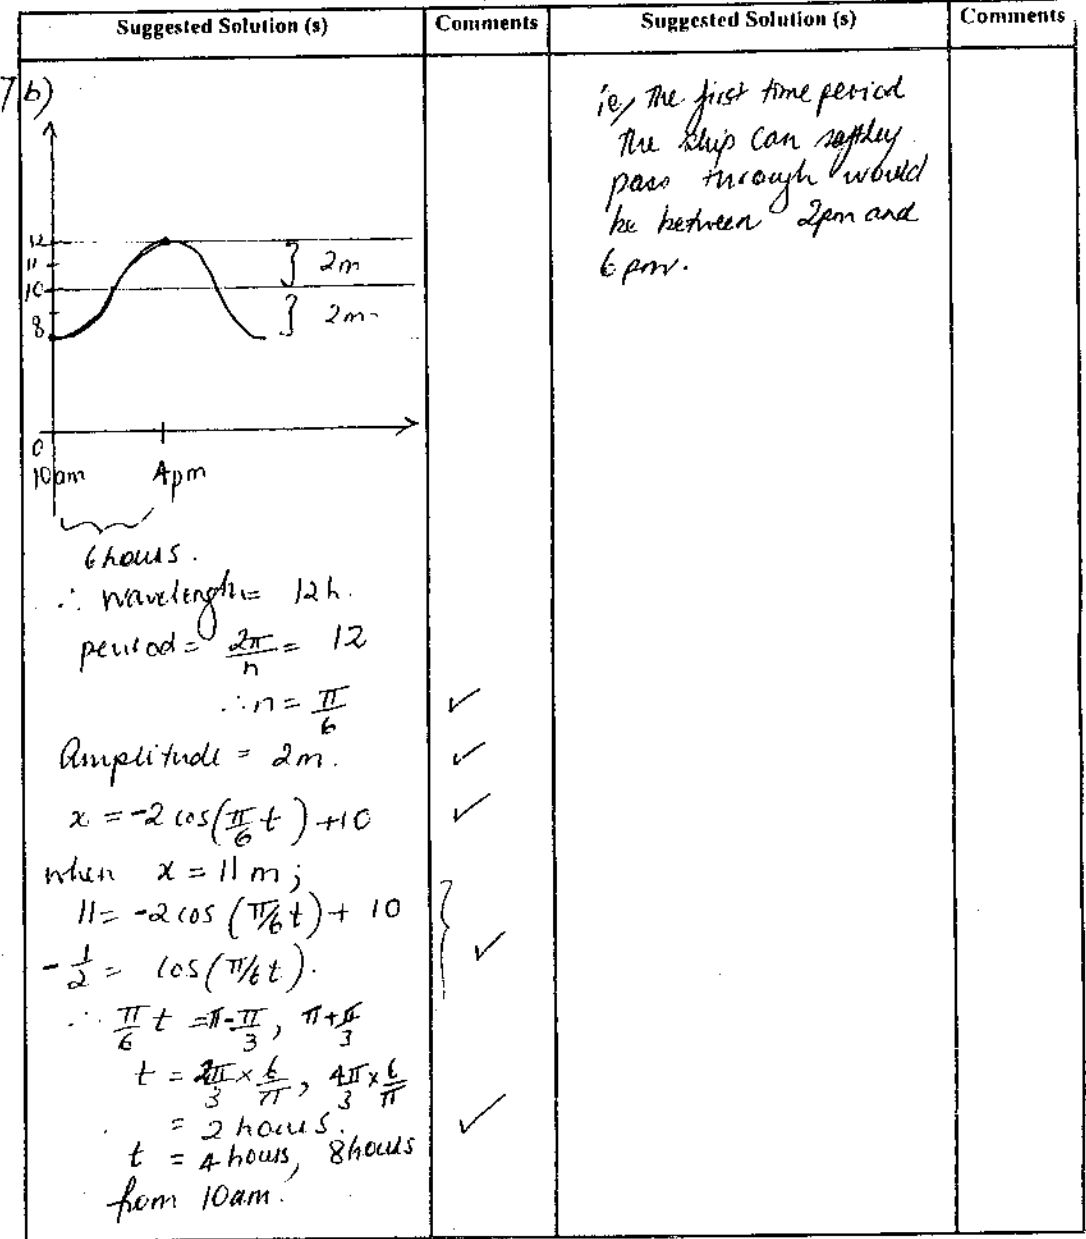 Suggested Solution (s)
Comments
Suggested Solution (s)
Comments
7b)
12
11
10
8
0
2m
2m
10am
4pm
6 hours.
∴ wavelength = 12h.
period = 2π/n = 12
∴ n = π/6
Amplitude = 2m.
x = -2 cos(π/6 t) + 10
when x = 11m;
11 = -2 cos (π/6 t) + 10
-1/2 = cos(π/6 t).
∴ π/6 t = π - π/3, π + π/3
t = 2π/3 × 6/π, 4π/3 × 6/π
= 2 hours.
t = 4 hours, 8 hours
from 10am.
ie, the first time period
the ship can safely
pass through would
be between 2pm and
6pm.